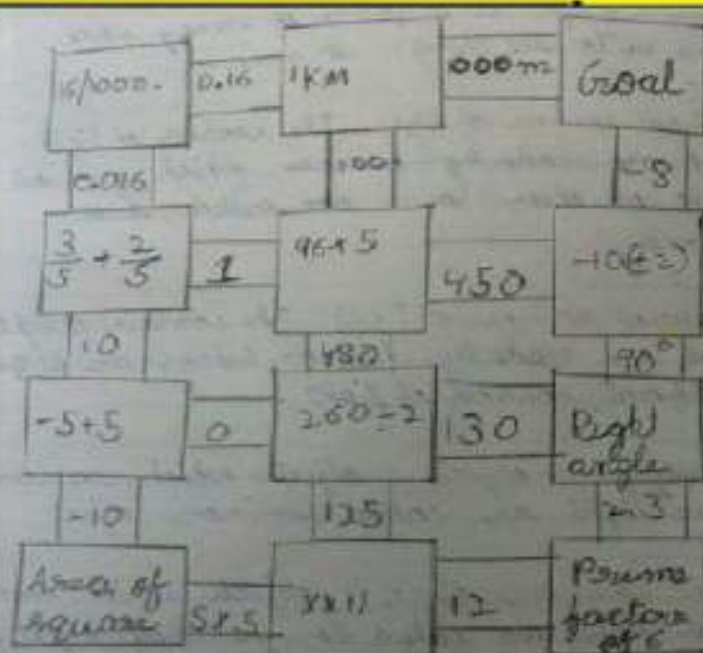 16/1000 0.16 1KM 000m Goal
0.016 100 -8
3/5 + 2/5 1 96×5 450 -10(±2)
10 480 90°
-5+5 0 260÷2 130 Right
angle
-10 125 2,3
Area of
square S×S 12 Prime
factors
of 6